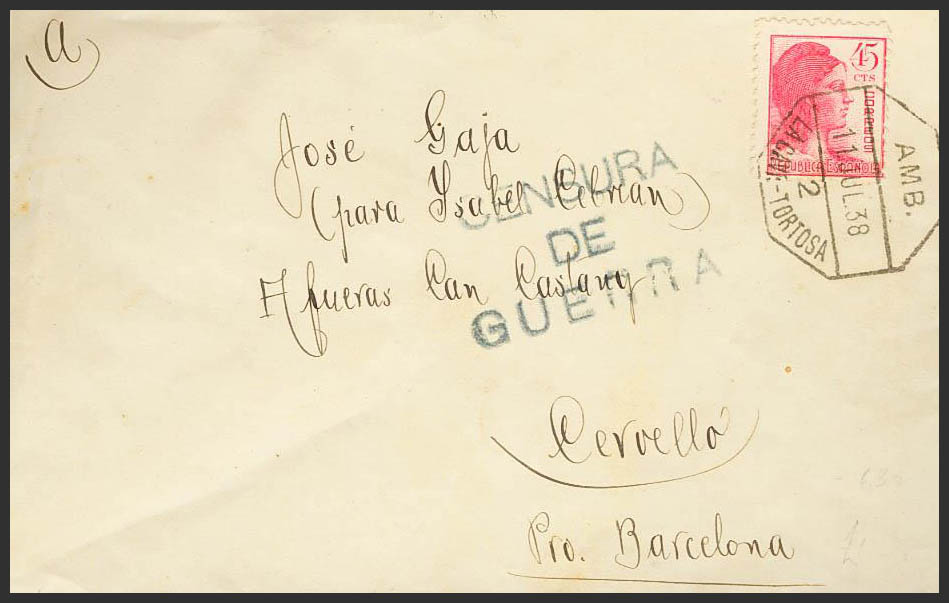 a
45
CTS
CORREOS
REPUBLICA ESPAÑOLA
AMB.
11 JUL 38
2
LA CAVA-TORTOSA
José Gaja
(para Ysabel Cebrean)
Afueras Can Castany
CENSURA
DE
GUERRA
Cervelló
Pro. Barcelona